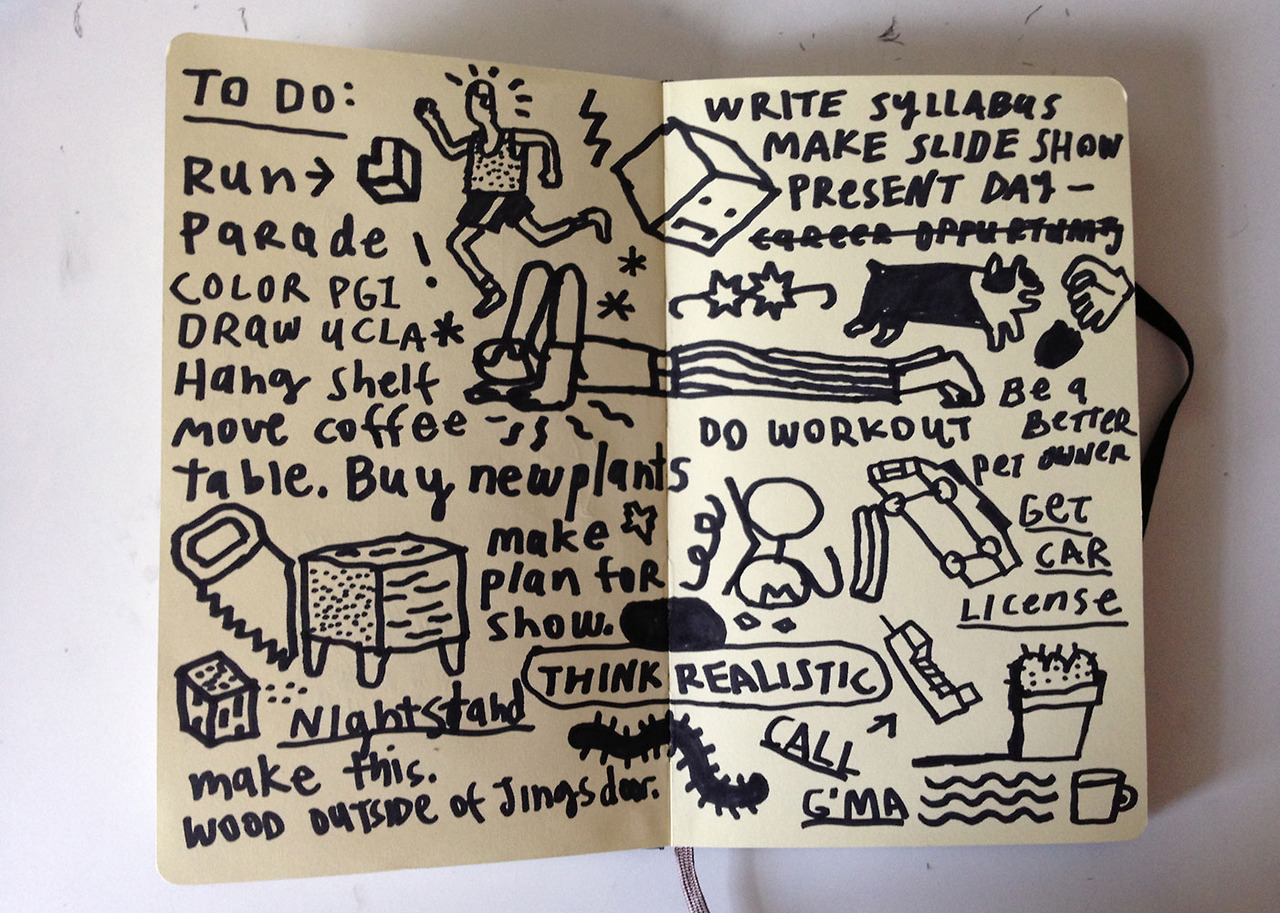 TO DO:
Run →
Parade!
COLOR PG1
DRAW UCLA*
Hang shelf
move coffee
table. Buy new plants
make
plan for
show.
THINK REALISTIC
Nightstand
make this.
WOOD OUTSIDE of Jings door.
WRITE SYLLABUS
MAKE SLIDE SHOW
PRESENT DAY —
CAREER OPPURTUNITY
Be a
BETTER
PET OWNER
DO WORKOUT
GET
CAR
LICENSE
CALL
G'MA